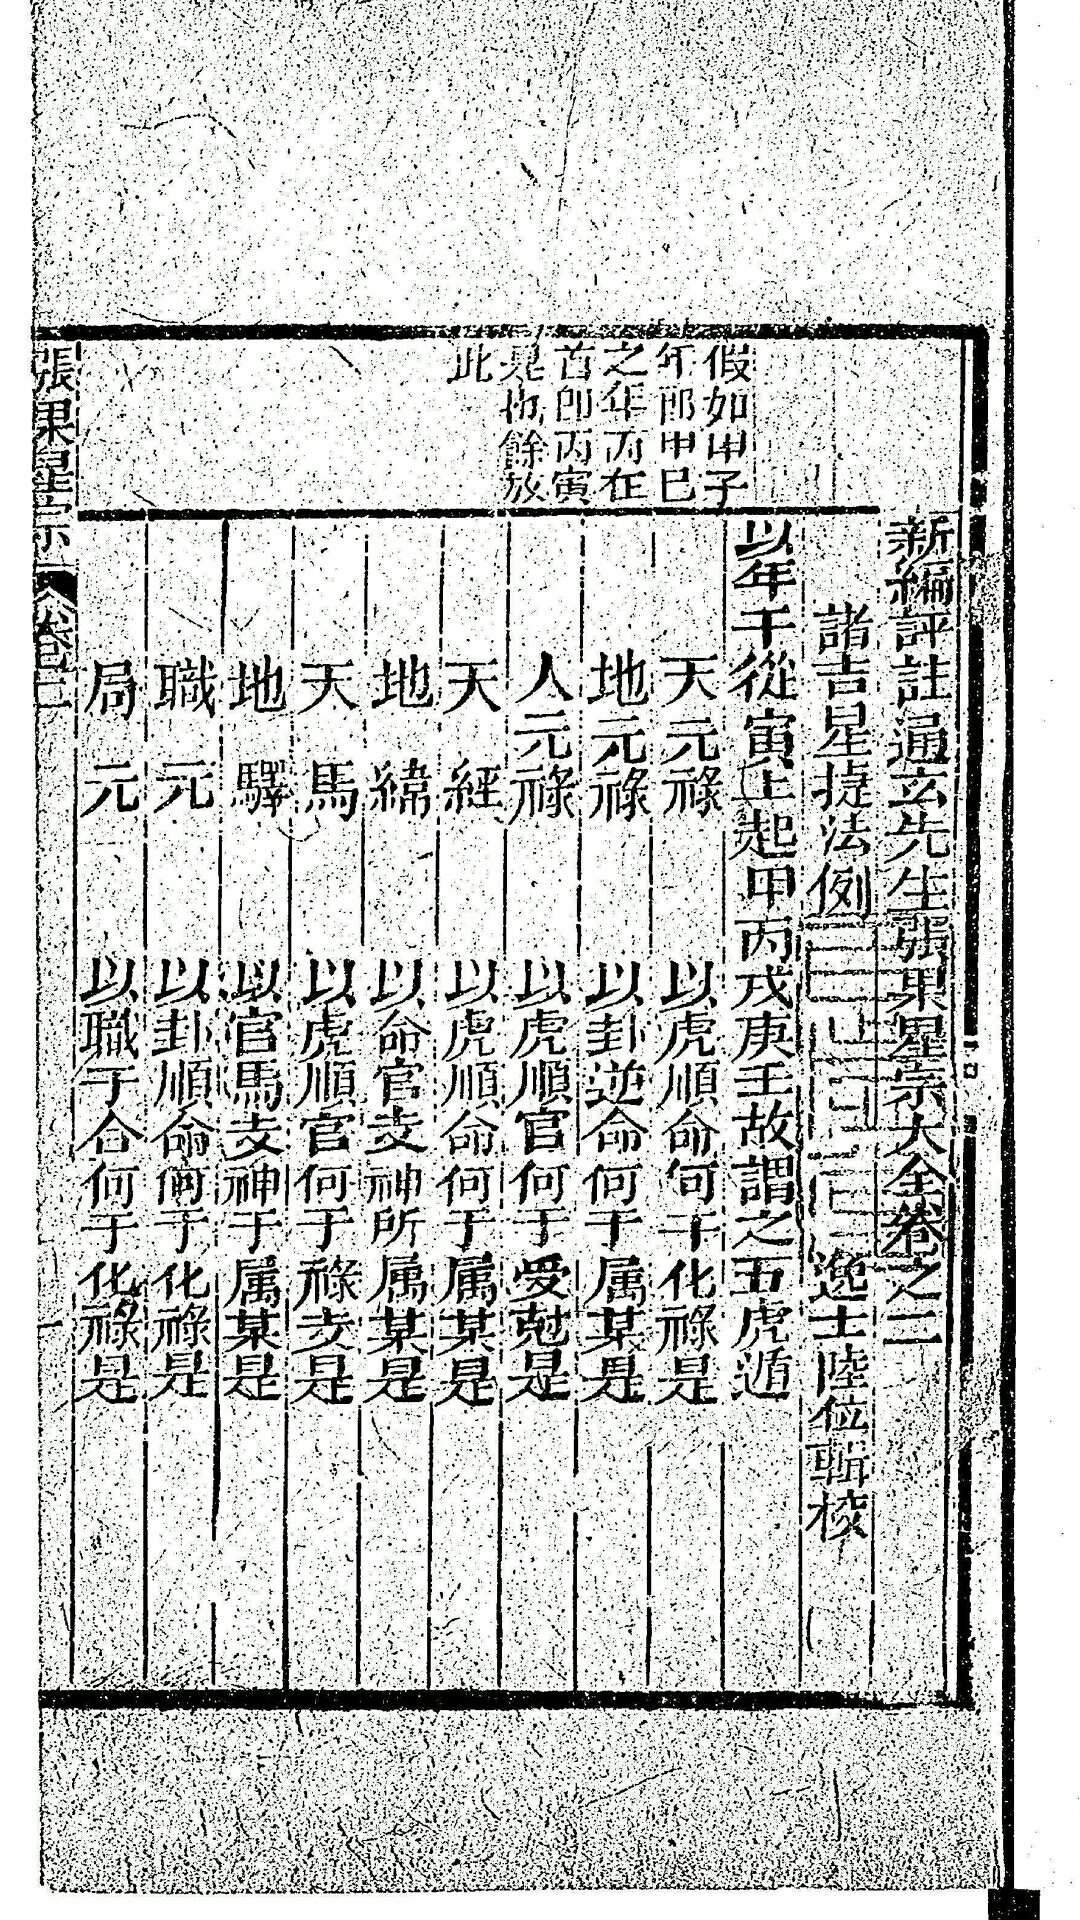 新編評註通玄先生張果星宗大全卷之二
諸吉星捷法例
逸士陸位輯校
假如甲子
年郎甲巳
之年丙在
首卽丙寅
是也餘放
此
以年干從寅上起甲丙戊庚壬故謂之五虎遁
天元祿 以虎順命何干化祿是
地元祿 以卦逆命何干属某是
人元祿 以虎順官何于受尅是
天經 以虎順命何于属某是
地緯 以命官支神所属某是
天馬 以虎順官何于祿支是
地驛 以官馬支神于属某是
職元 以卦順命何于化祿是
局元 以職于合何于化祿是
張果星宗 卷二